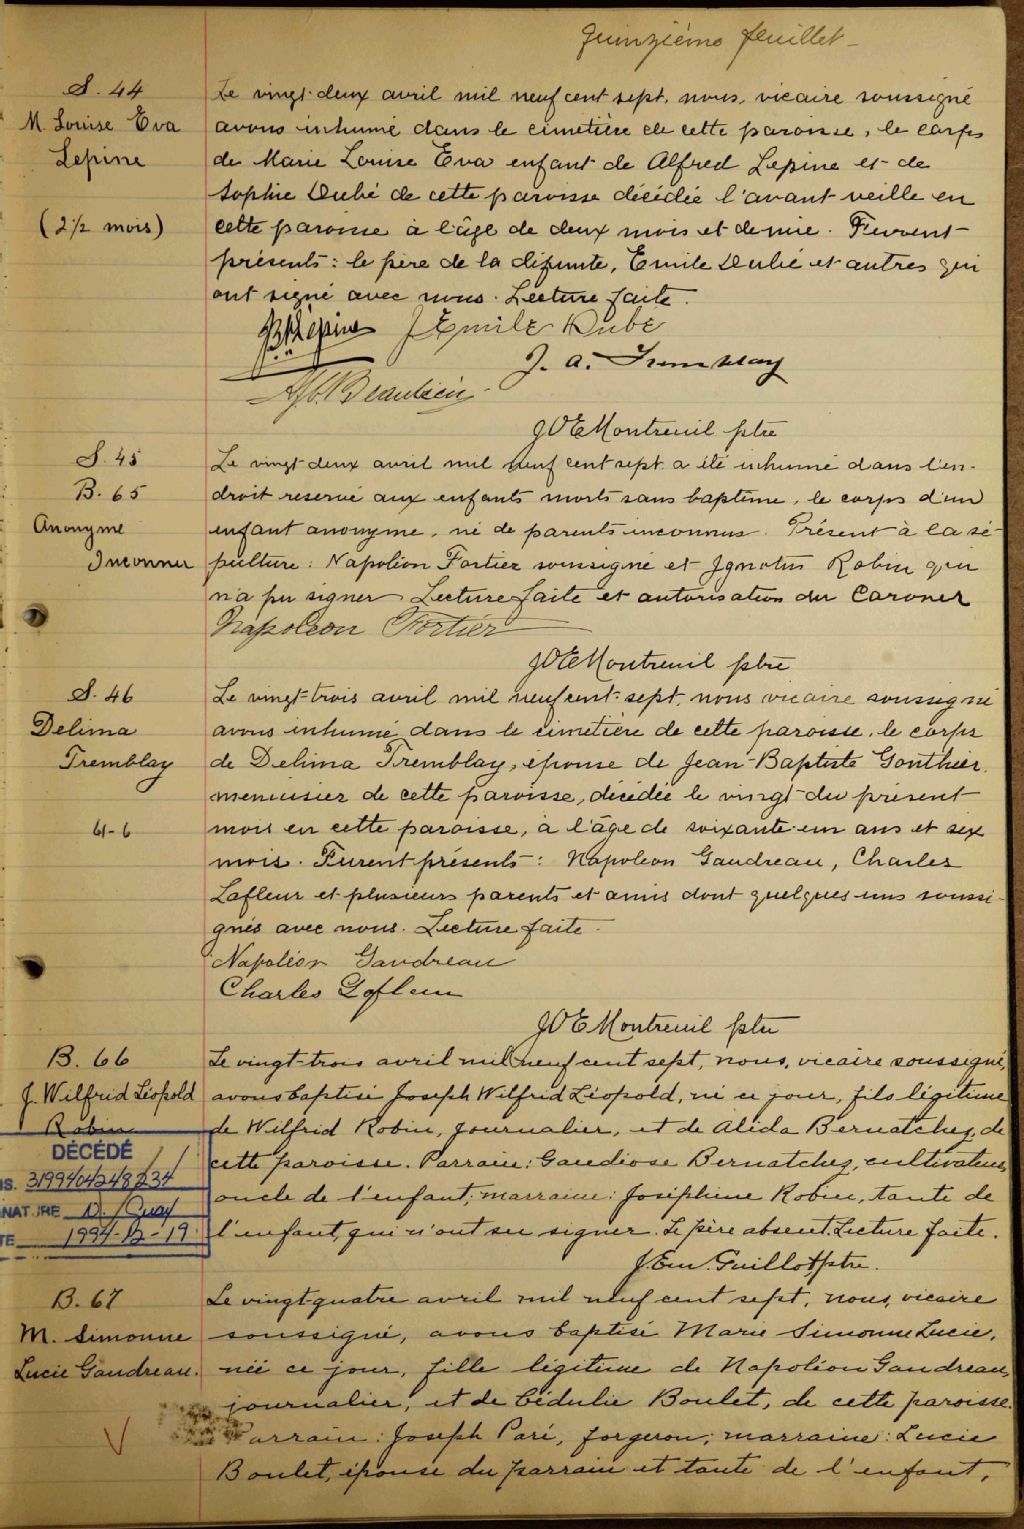 Quinzième feuillet -
S. 44
M. Louise Eva
Lepine
(2 1/2 mois)
Le vingt-deux avril mil neuf cent sept, nous, vicaire soussigné
avons inhumé dans le cimetière de cette paroisse, le corps
de Marie Louise Eva enfant de Alfred Lepine et de
Sophie Dubé de cette paroisse décédée l'avant veille en
cette paroisse à l'âge de deux mois et demie. Furent
présents : le père de la défunte, Emile Dubé et autres qui
ont signé avec nous. Lecture faite.
Lépine J Emile Dubé
J. A. Tremblay
Beaulieu
JOE Montreuil ptre
S. 45
B. 65
Anonyme
Inconnu
Le vingt-deux avril mil neuf cent sept a été inhumé dans l'en-
droit reservé aux enfants morts sans baptême, le corps d'un
enfant anonyme, né de parents inconnus. Présent à la sé-
pulture : Napoléon Fortier soussigné et Ignatus Robin qui
n'a pu signer Lecture faite et autorisation du Coroner
Napoléon Fortier
JOE Montreuil ptre
S. 46
Delima
Tremblay
61-6
Le vingt-trois avril mil neuf cent-sept, nous vicaire soussigné
avons inhumé dans le cimetière de cette paroisse, le corps
de Delima Tremblay, épouse de Jean-Baptiste Gonthier,
menuisier de cette paroisse, décédée le vingt-du présent
mois en cette paroisse, à l'âge de soixante-un ans et six
mois. Furent présents : Napoleon Gaudreau, Charles
Lafleur et plusieurs parents et amis dont quelques-uns soussi-
gnés avec nous. Lecture faite.
Napoléon Gaudreau
Charles Lafleur
JOE Montreuil ptre
B. 66
J. Wilfrid Léopold
Robin
DÉCÉDÉ
NS. 3199404248234
NATURE
TE 1994-12-19
Le vingt-trois avril mil neuf cent sept, nous, vicaire soussigné,
avons baptisé Joseph Wilfrid Léopold, né ce jour, fils légitime
de Wilfrid Robin, journalier, et de Alida Bernatchez, de
cette paroisse. Parrain : Gaudiose Bernatchez, cultivateur,
oncle de l'enfant; marraine : Joséphine Robin, tante de
l'enfant, qui n'ont su signer. Le père absent. Lecture faite.
J. Em. Guillot ptre.
B. 67
M. Simonne
Lucie Gaudreau.
V
Le vingt-quatre avril mil neuf cent sept, nous, vicaire
soussigné, avons baptisé Marie Simonne Lucie,
née ce jour, fille légitime de Napoléon Gaudreau,
journalier, et de Cédulie Boulet, de cette paroisse.
Parrain : Joseph Paré, forgeron; marraine : Lucie
Boulet, épouse du parrain et tante de l'enfant,